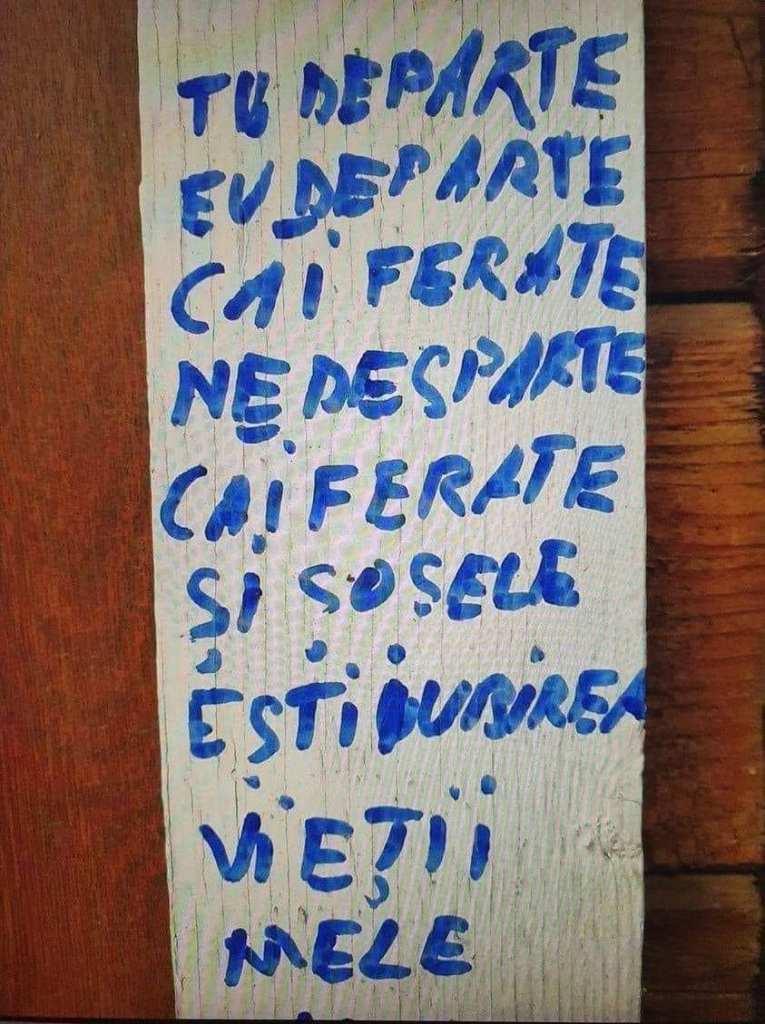 TU DEPARTE
EU DEPARTE
CAI FERATE
NE DESPARTE
CAI FERATE
ȘI ȘOȘELE
EȘTI IUBIREA
VIEȚII
MELE